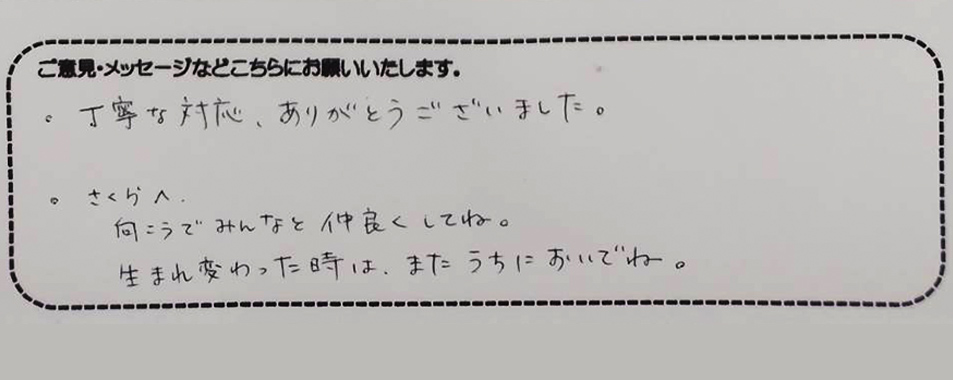 ご意見・メッセージなどこちらにお願いいたします。
。丁寧な対応、ありがとうございました。
。さくらへ.
向こうでみんなと仲良くしてね。
生まれ変わった時は、またうちにおいでね。